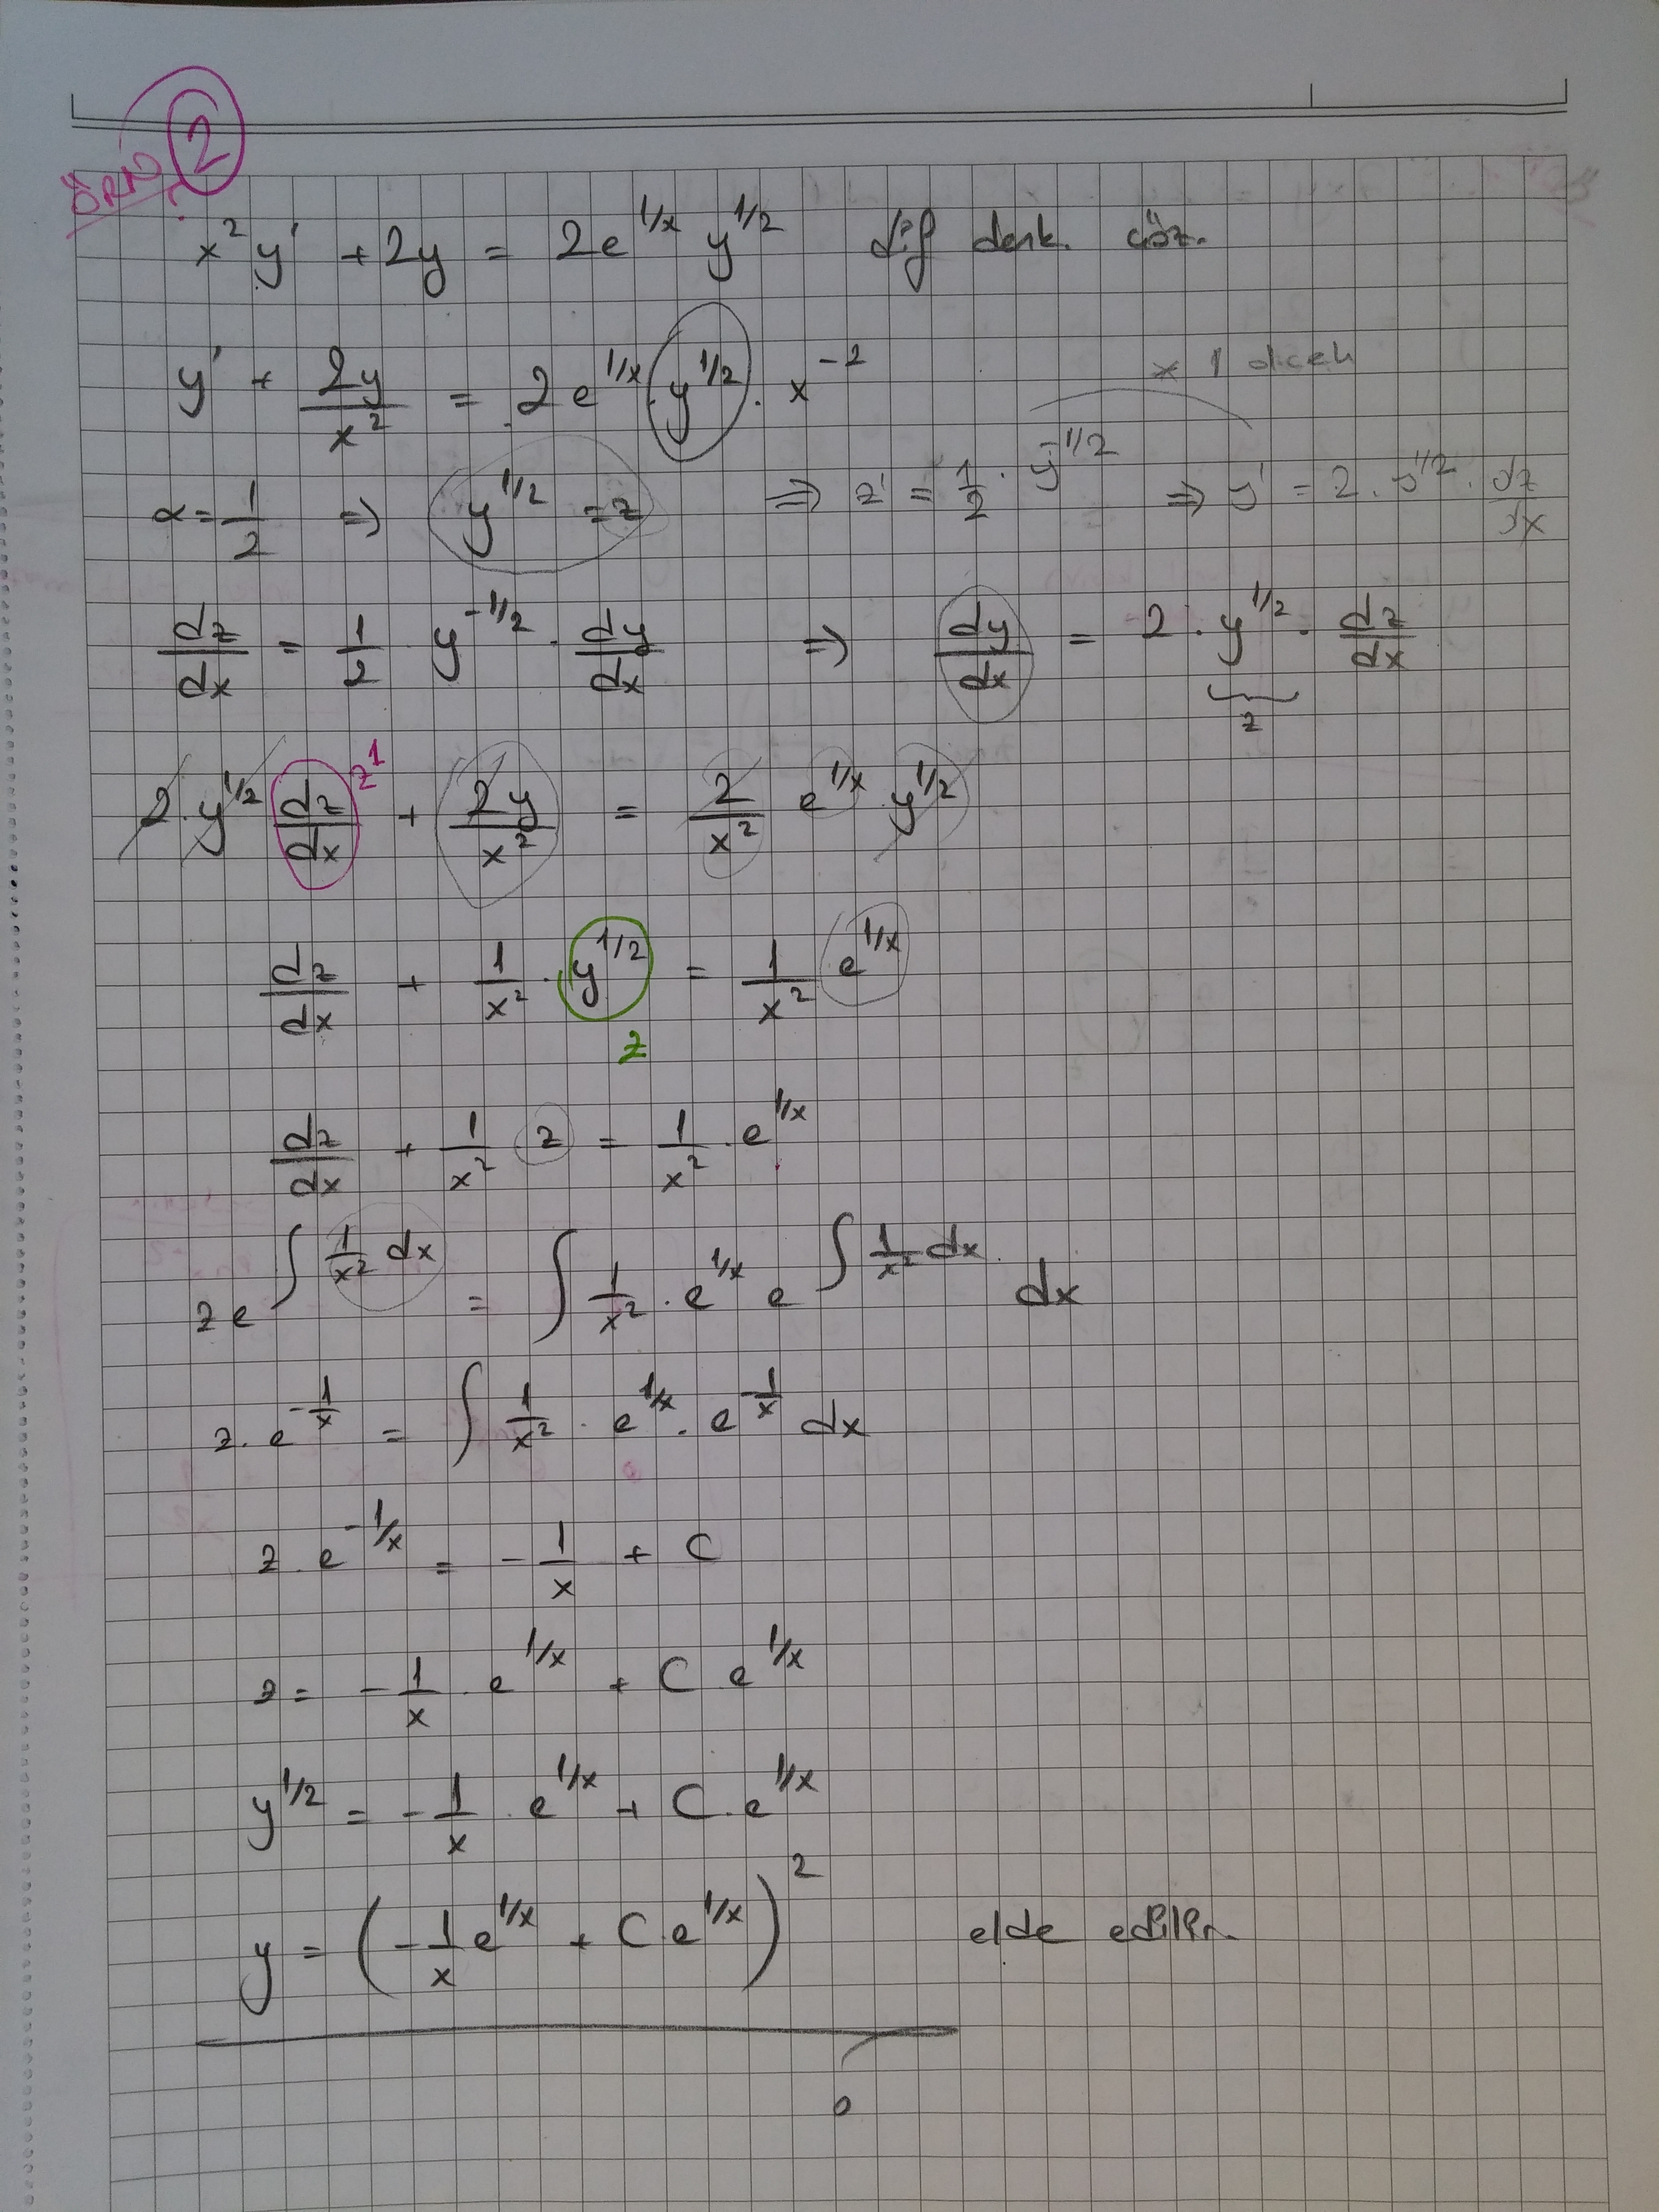 ÖRN 2
x² y' + 2y = 2e^{1/x} y^{1/2} dif denk. çöz.
y' + 2y/x² = 2e^{1/x} · y^{1/2} · x^{-2}
x 1
α = 1/2 ⇒ y^{1/2} = z ⇒ z' = 1/2 · y^{-1/2} ⇒ y' = 2 · y^{1/2} · dz/dx
dz/dx = 1/2 · y^{-1/2} · dy/dx ⇒ dy/dx = 2 · y^{1/2} · dz/dx
z
2 · y^{1/2} dz/dx z¹ + 2y/x² = 2/x² e^{1/x} · y^{1/2}
dz/dx + 1/x² · y^{1/2} = 1/x² e^{1/x}
z
dz/dx + 1/x² z = 1/x² · e^{1/x}
z e^{∫ 1/x² dx} = ∫ 1/x² · e^{1/x} e^{∫ 1/x² dx} dx
z · e^{-1/x} = ∫ 1/x² · e^{1/x} · e^{-1/x} dx
z · e^{-1/x} = -1/x + C
z = -1/x · e^{1/x} + C e^{1/x}
y^{1/2} = -1/x · e^{1/x} + C · e^{1/x}
y = (-1/x e^{1/x} + C · e^{1/x})² elde edilir.